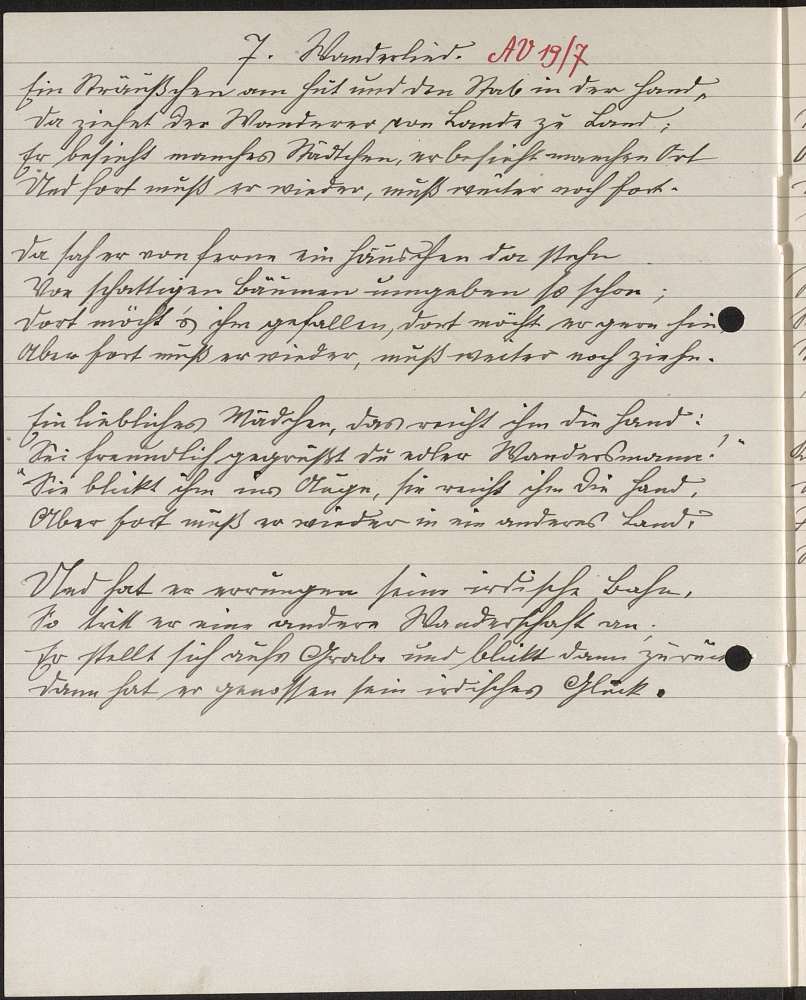 7. Wanderlied. AV 19/7
Ein Sträußchen am Hut und den Stab in der Hand,
Da ziehet der Wanderer von Lande zu Land;
Er besieht manches Städtchen, er besieht manchen Ort
Und fort muß er wieder, muß weiter noch fort.
Da sah er von ferne ein Häuschen da stehn
Von schattigen Bäumen umgeben so schön;
Dort möcht's ihm gefallen, dort möcht er gern hin
Aber fort muß er wieder, muß weiter noch ziehn.
Ein liebliches Mädchen, das reicht ihm die Hand:
"Sei freundlich gegrüßt du edler Wandersmann!"
Sie blickt ihm ins Auge, sie reicht ihm die Hand,
Aber fort muß er wieder in ein anderes Land.
Und hat er errungen seine irdische Bahn,
So tritt er eine andere Wanderschaft an.
Er stellt sich aufs Grabe und blickt dann zurück
Dann hat er genossen sein irdisches Glück.